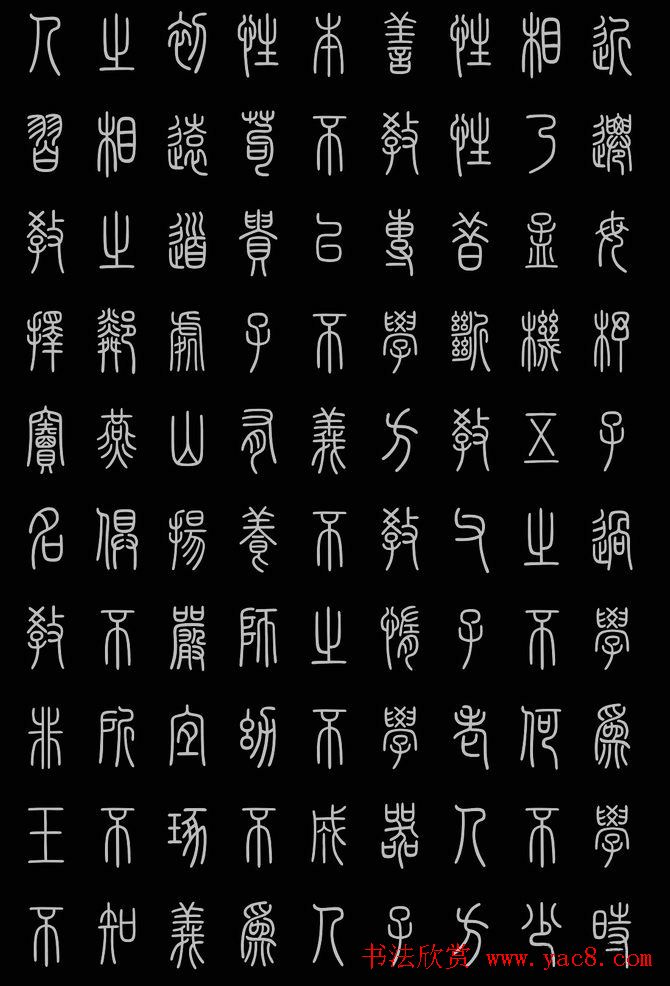 人之初性本善性相近
習相遠苟不教性乃遷
教之道貴以專昔孟母
擇鄰處子不學斷機杼
竇燕山有義方教五子
名俱揚養不教父之過
教不嚴師之惰子不學
非所宜幼不學老何為
玉不琢不成器人不學
不知義為人子方少時
书法欣赏 www.yac8.com